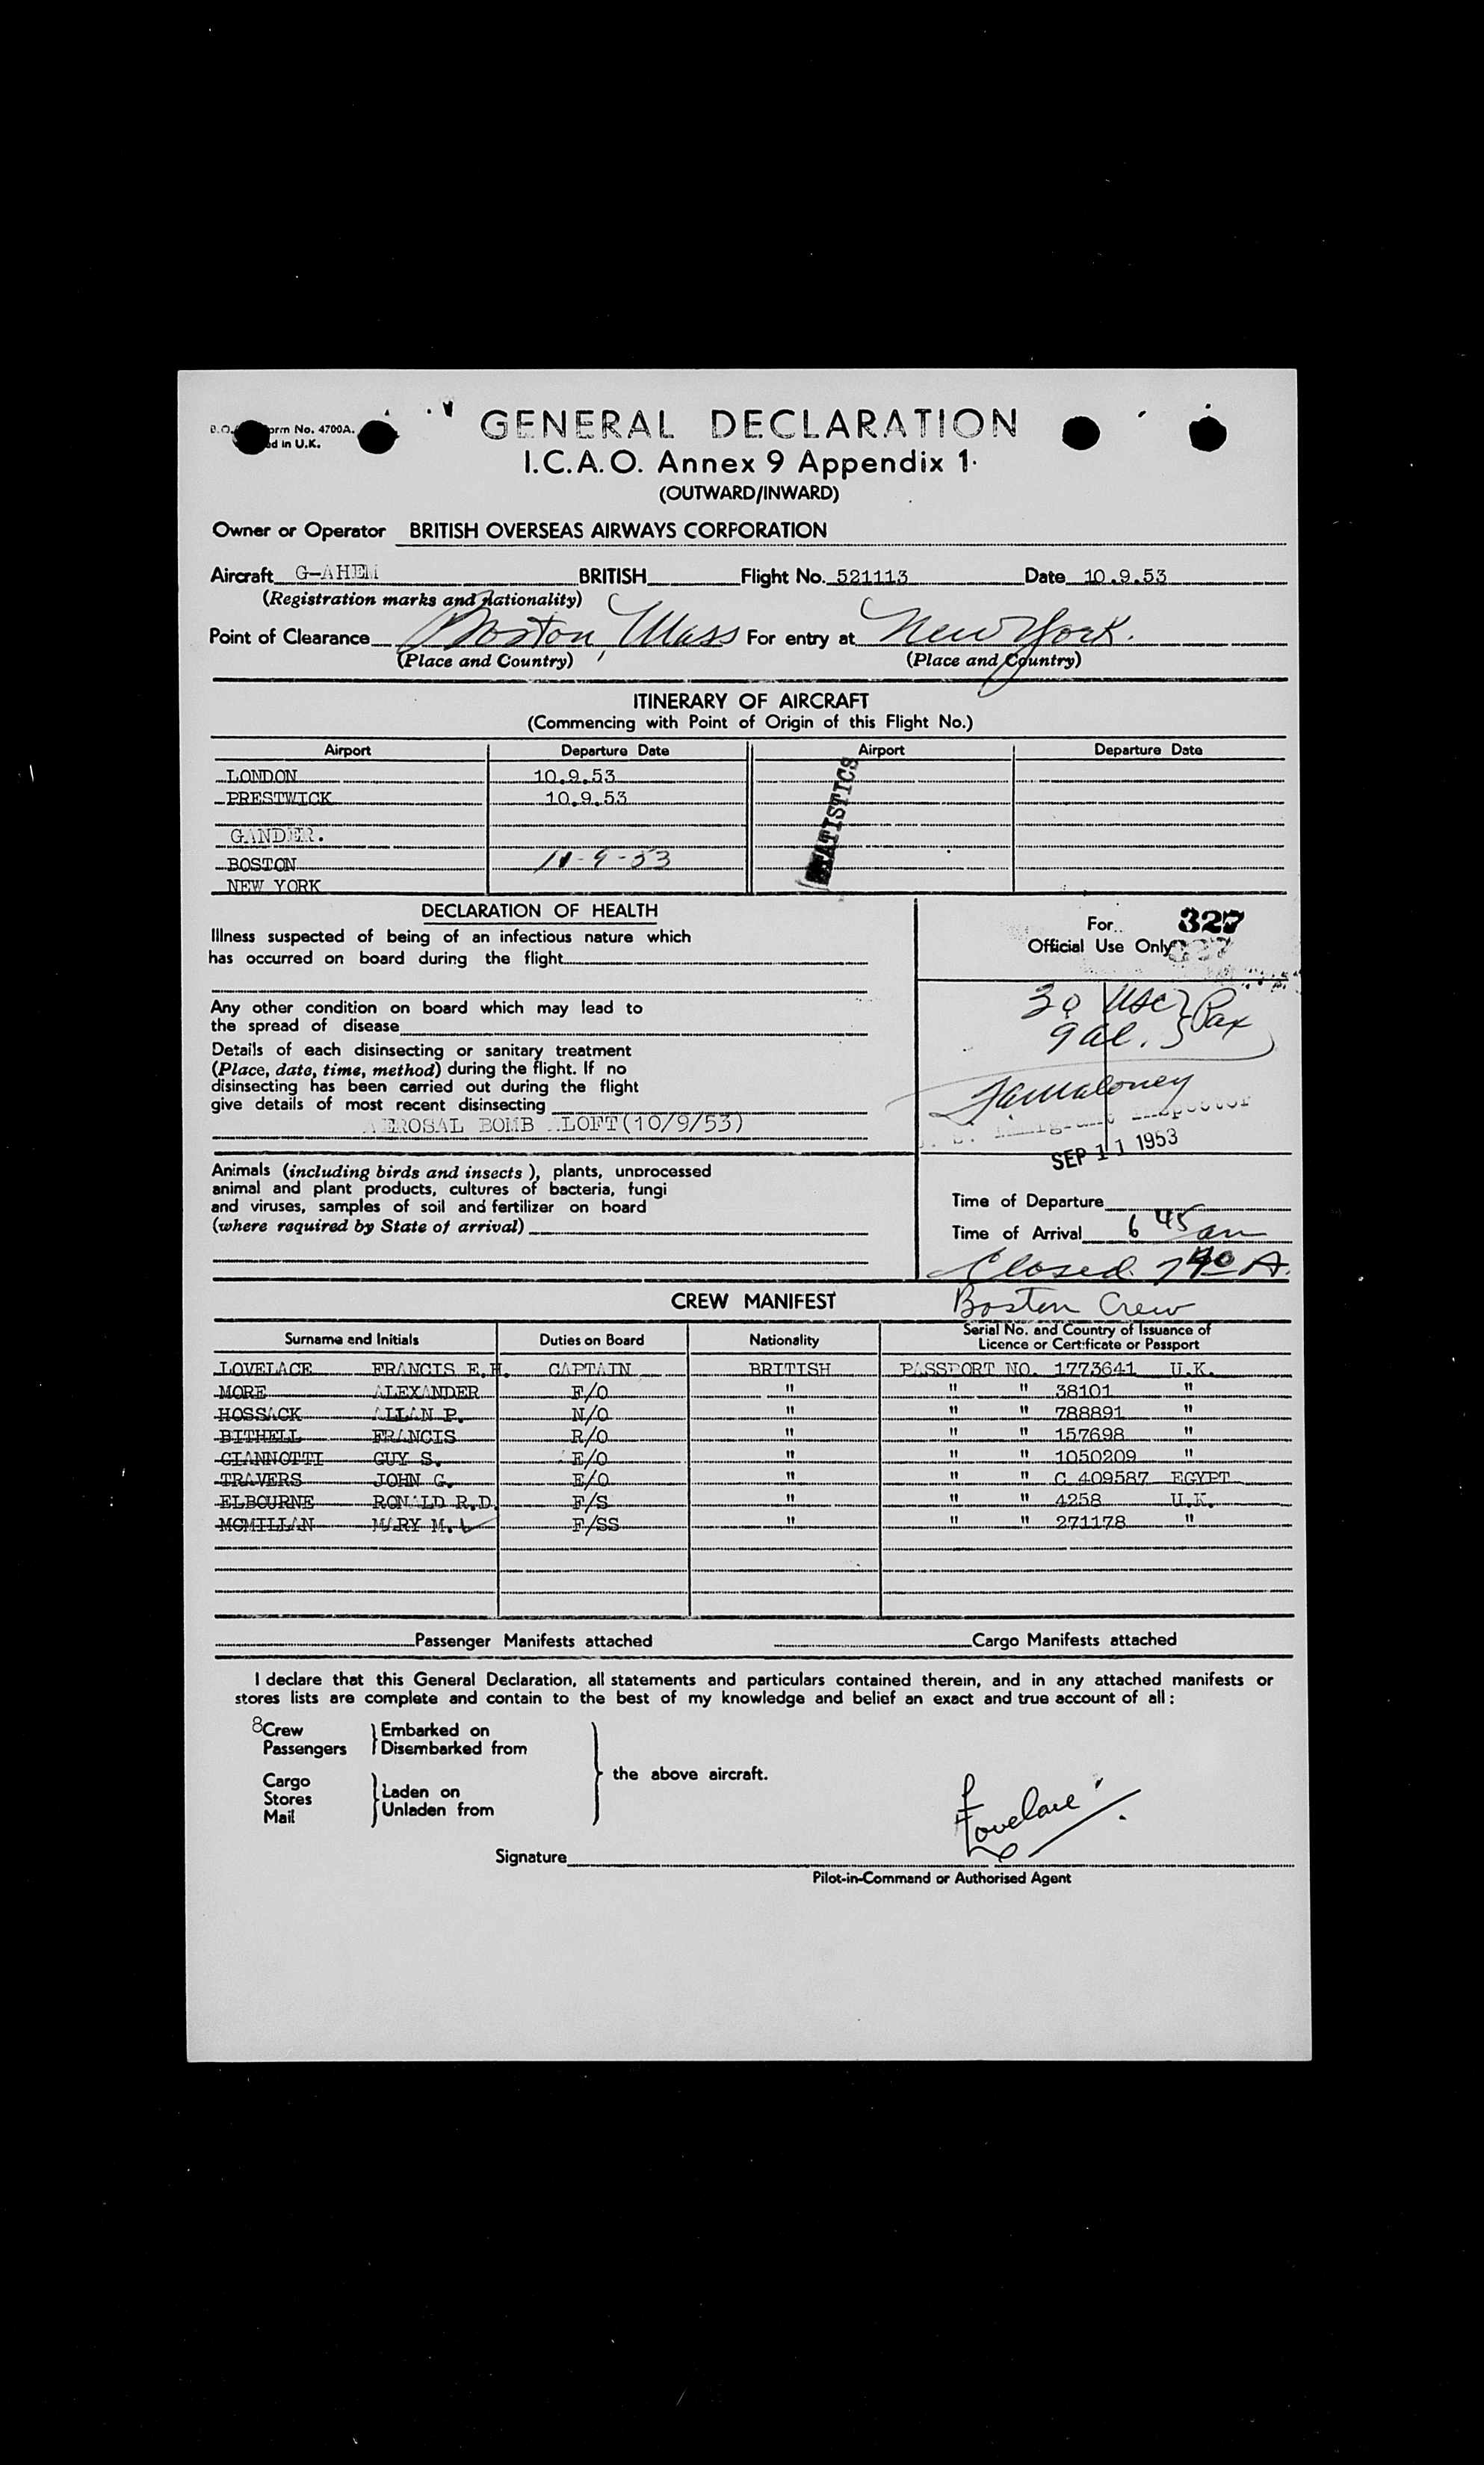 orm No. 4700A.
ed in U.K.
GENERAL DECLARATION
I.C.A.O. Annex 9 Appendix 1.
(OUTWARD/INWARD)
Owner or Operator BRITISH OVERSEAS AIRWAYS CORPORATION
Aircraft G-AHEM BRITISH Flight No. 521113 Date 10.9.53
(Registration marks and nationality)
Point of Clearance Boston, Mass For entry at New York.
(Place and Country) (Place and Country)
ITINERARY OF AIRCRAFT
(Commencing with Point of Origin of this Flight No.)
Airport Departure Date Airport Departure Date
LONDON 10.9.53
PRESTWICK 10.9.53
GANDER.
BOSTON 11-9-53
NEW YORK
STATISTICS
DECLARATION OF HEALTH
Illness suspected of being of an infectious nature which
has occurred on board during the flight
Any other condition on board which may lead to
the spread of disease
Details of each disinsecting or sanitary treatment
(Place, date, time, method) during the flight. If no
disinsecting has been carried out during the flight
give details of most recent disinsecting
AEROSAL BOMB ALOFT(10/9/53)
Animals (including birds and insects), plants, unprocessed
animal and plant products, cultures of bacteria, fungi
and viruses, samples of soil and fertilizer on board
(where required by State of arrival)
For 327
Official Use Only 327
30 USC } Pax
9 al.
Immigrant Inspector
SEP 11 1953
Time of Departure
Time of Arrival 6 45 am
Closed 7 40 A.
CREW MANIFEST Boston Crew
Surname and Initials Duties on Board Nationality Serial No. and Country of Issuance of
Licence or Certificate or Passport
LOVELACE FRANCIS E.H. CAPTAIN BRITISH PASSPORT NO. 1773641 U.K.
MORE ALEXANDER F/O " " " 38101 "
HOSSACK ALLAN P. N/O " " " 788891 "
BITHELL FRANCIS R/O " " " 157698 "
GIANNOTTI GUY S. E/O " " " 1050209 "
TRAVERS JOHN G. E/O " " " C 409587 EGYPT
ELBOURNE RONALD R.D. F/S " " " 4258 U.K.
MCMILLAN MARY M. F/SS " " " 271178 "
Passenger Manifests attached Cargo Manifests attached
I declare that this General Declaration, all statements and particulars contained therein, and in any attached manifests or
stores lists are complete and contain to the best of my knowledge and belief an exact and true account of all :
8 Crew } Embarked on
Passengers } Disembarked from
the above aircraft.
Cargo
Stores } Laden on
Mail } Unladen from
Lovelace
Signature
Pilot-in-Command or Authorised Agent